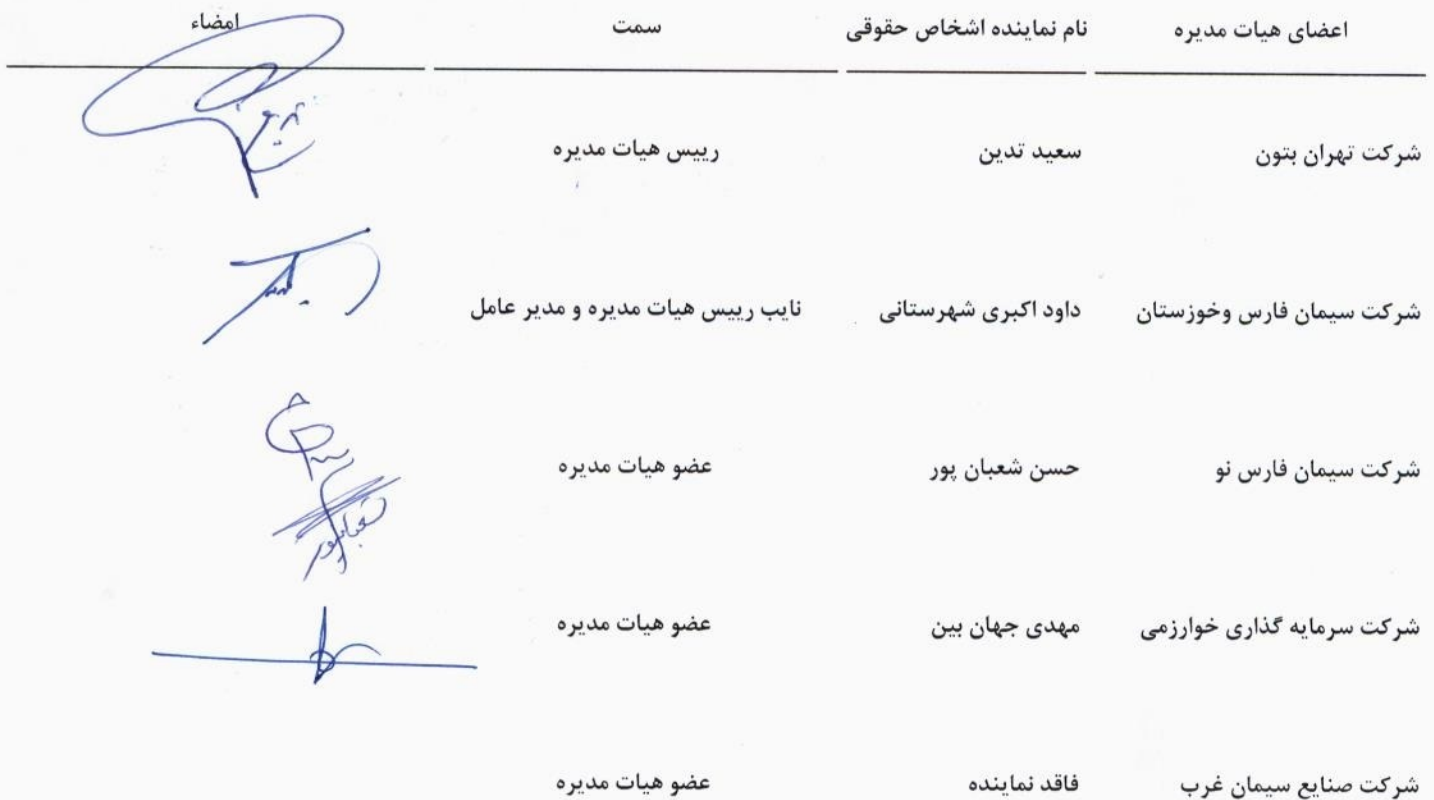 اعضای هیات مدیره نام نماینده اشخاص حقوقی سمت امضاء
شرکت تهران بتون سعید تدین رییس هیات مدیره
شرکت سیمان فارس وخوزستان داود اکبری شهرستانی نایب رییس هیات مدیره و مدیر عامل
شرکت سیمان فارس نو حسن شعبان پور عضو هیات مدیره
شعبانپور
شرکت سرمایه گذاری خوارزمی مهدی جهان بین عضو هیات مدیره
شرکت صنایع سیمان غرب فاقد نماینده عضو هیات مدیره